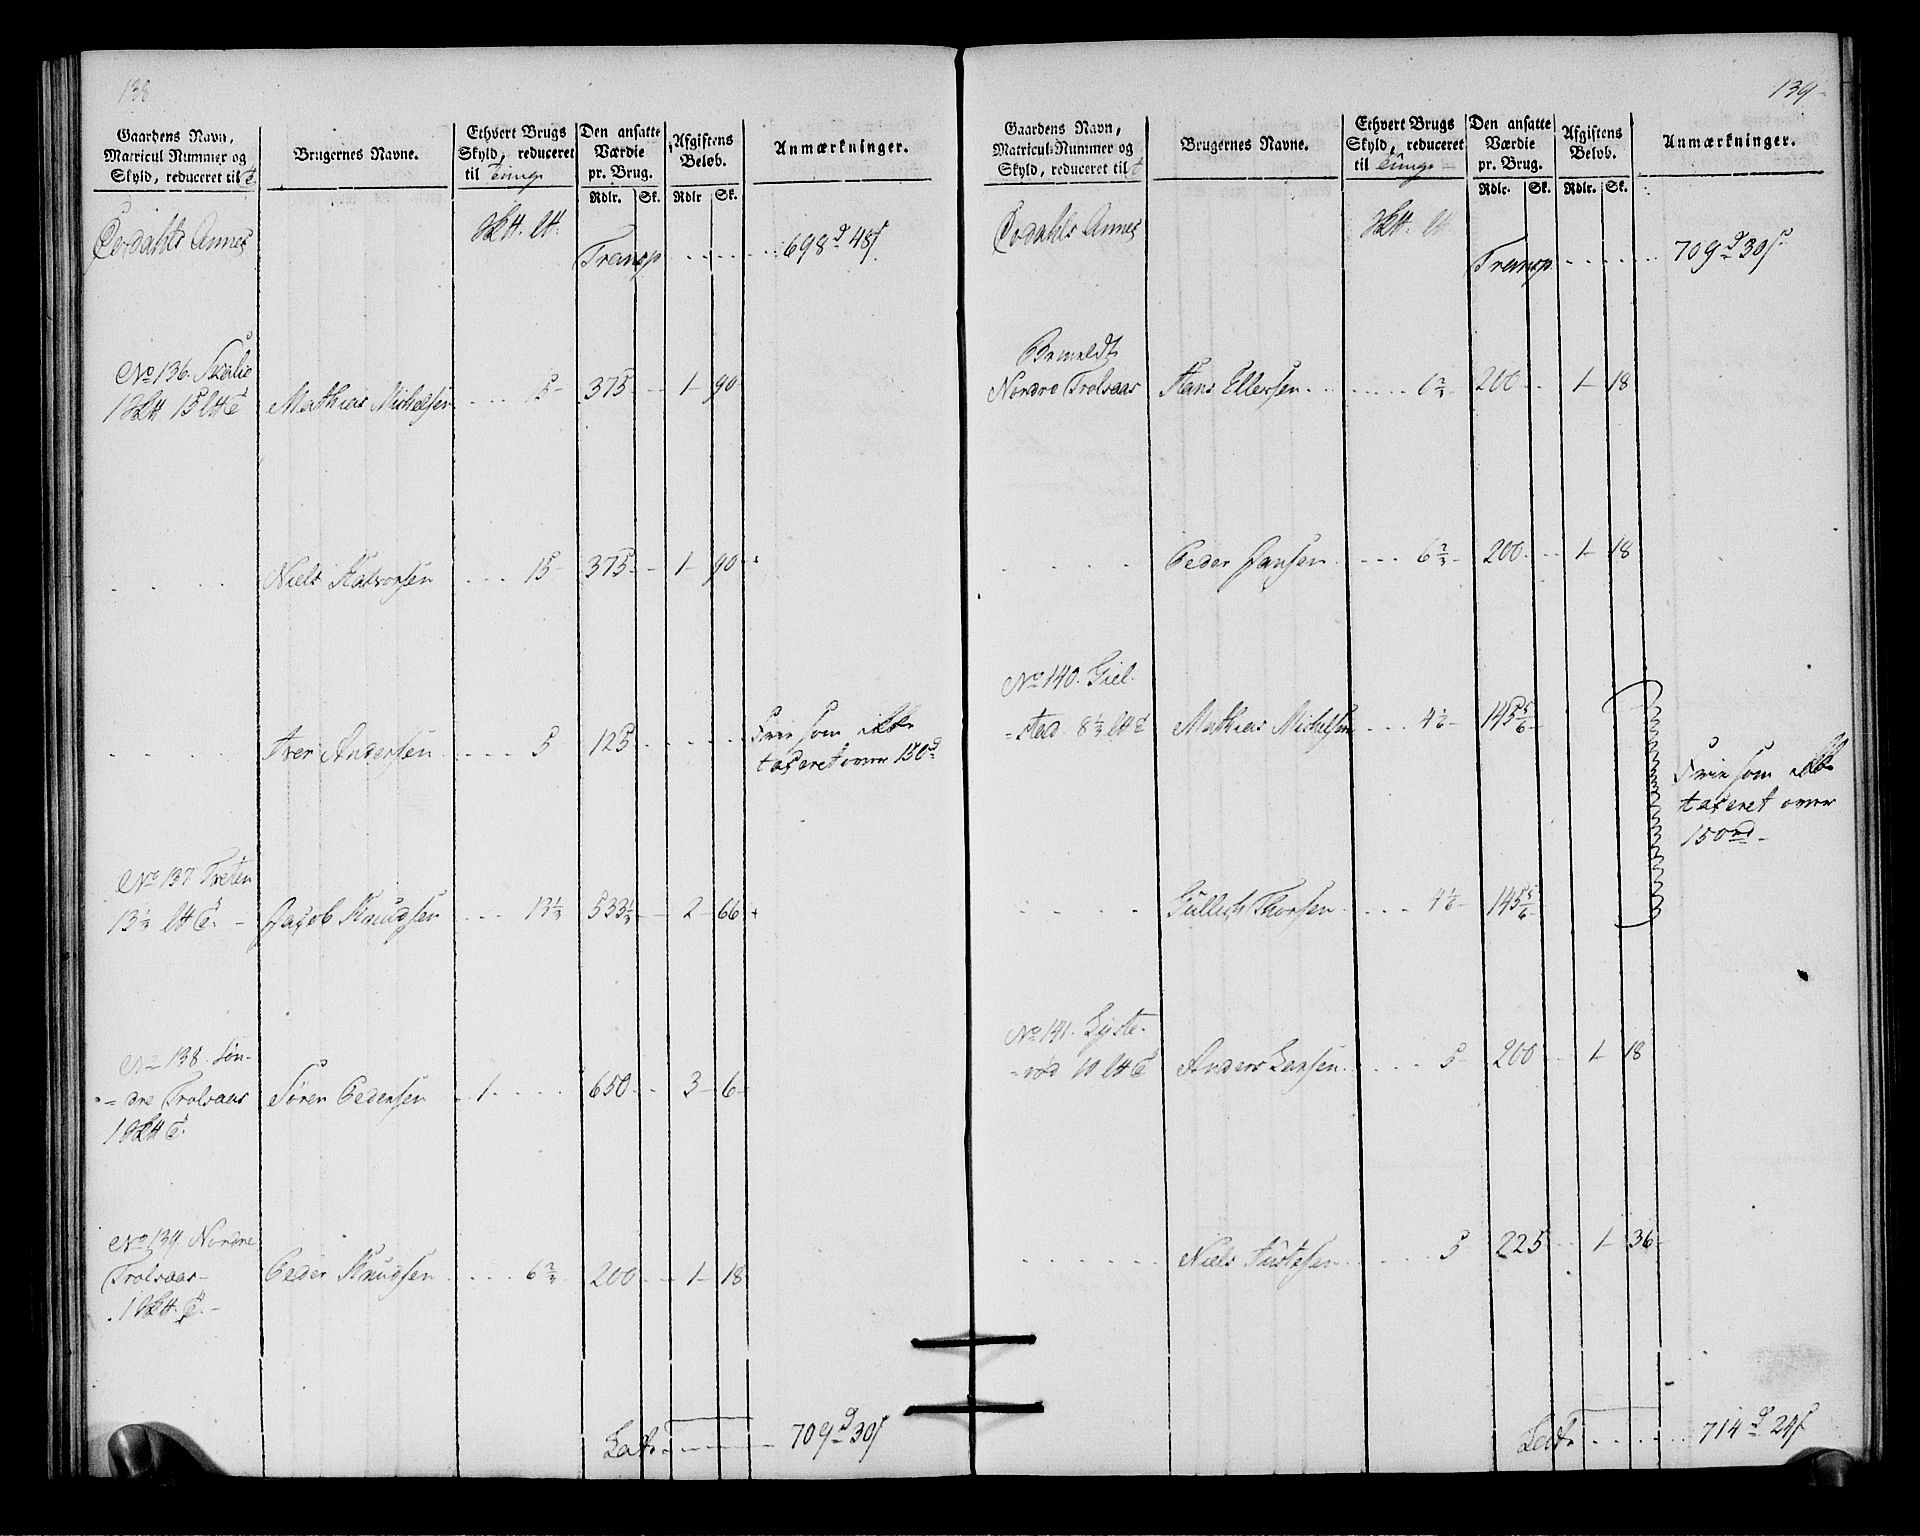 138
Gaardens Navn,
Matricul Nummer og
Skyld, reduceret til T
Brugernes Navne.
Ethvert Brugs
Skyld, reduceret
til Tunge
Den ansatte
Værdie
pr. Brug.
Rdlr. Sk.
Afgiftens
Beløb.
Rdlr Sk.
Anmærkninger.
Annex
Transp 698 d 48 s
No 136. Skalie
15 Mathias Michelsen 15 375 1 90
Niels Halvorsen 15 375 1 90
Iver Andersen 5 125 Frie som ikke
taxeret over 150 d
No 137 Treten
13 1/3 Jacob Knudsen 13 1/3 533 1/3 2 66
No 138. Søn-
dre Trolsaas Søren Pedersen 1 650 3 6
1
No 139. Nordre
Trolsaas Peder Knudsen 6 2/3 200 1 18
1
Lat. 709 d 30 s
139
Gaardens Navn,
Matricul-Nummer og
Skyld, reduceret til T
Brugernes Navne.
Ethvert Brugs
Skyld, reduceret
til Tunge
Den ansatte
Værdie
pr. Brug.
Rdlr. Sk.
Afgiftens
Beløb.
Rdlr. Sk.
Anmærkninger.
Annex
Transp 709 d 30 s
Bemeldte
Nordre Trolsaas Hans Ellefsen 6 2/3 200 1 18
Peder Hansen 6 2/3 200 1 18
No 140. Giel-
stad 8 1/3 Mathias Michelsen 4 1/6 145 5/6
Frie som ikke
taxeret over
150 rd
Gullich Thorsen 4 1/6 145 5/6
No 141. Lyste-
rød 10 Anders Larsen 5 200 1 18
Niels 5 225 1 36
Lat. 714 d